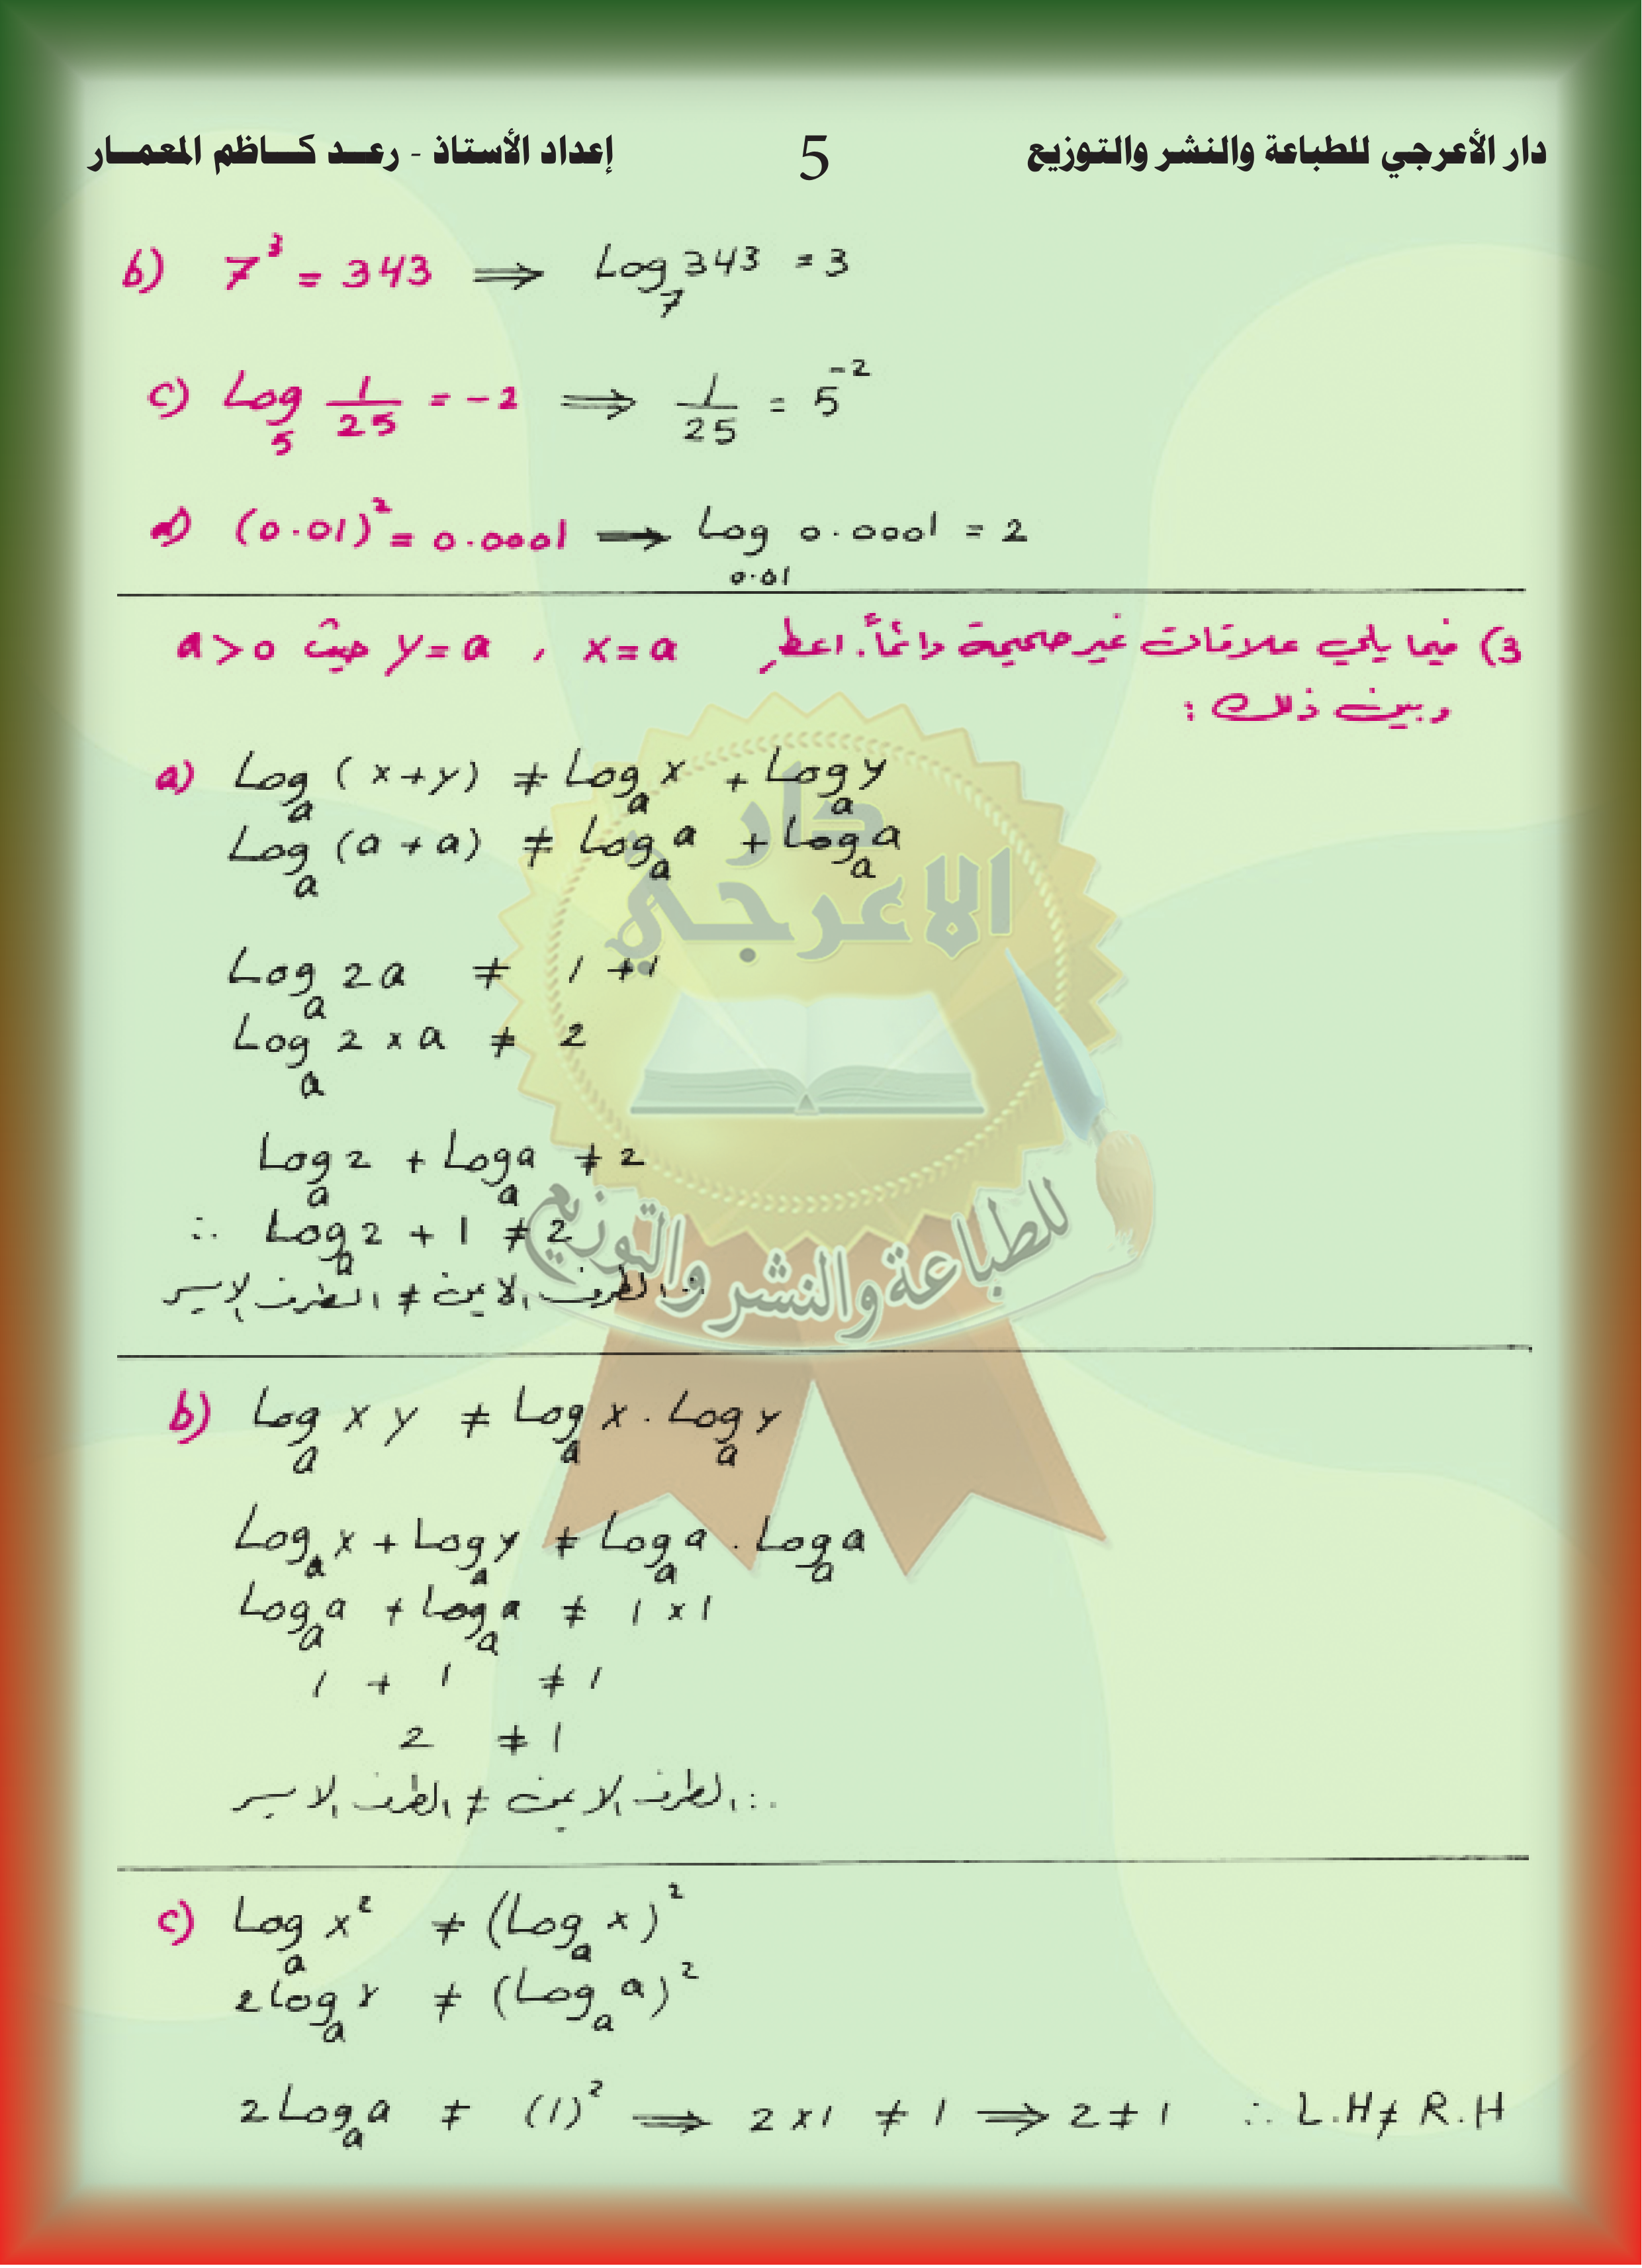 دار الأعرجي للطباعة والنشر والتوزيع 5 إعداد الأستاذ - رعـد كـاظم المعمـار
b) 7³ = 343 ⟹ Log₇ 343 = 3
c) Log₅ 1/25 = -2 ⟹ 1/25 = 5⁻²
d) (0.01)² = 0.0001 ⟶ Log₀.₀₁ 0.0001 = 2
3) فيما يلي علاقات غير صحيحة دائماً. اعطِ x = a , y = a حيث a > 0
وبين ذلك :
a) Logₐ (x + y) ≠ Logₐ x + Logₐ y
Logₐ (a + a) ≠ Logₐ a + Logₐ a
Logₐ 2a ≠ 1 + 1
Logₐ 2 × a ≠ 2
Logₐ 2 + Logₐ a ≠ 2
∴ Logₐ 2 + 1 ≠ 2
∴ الطرف الايمن ≠ الطرف الايسر
b) Logₐ x y ≠ Logₐ x . Logₐ y
Logₐ x + Logₐ y ≠ Logₐ a . Logₐ a
Logₐ a + Logₐ a ≠ 1 × 1
1 + 1 ≠ 1
2 ≠ 1
∴ الطرف الايمن ≠ الطرف الايسر
c) Logₐ x² ≠ (Logₐ x)²
2 Logₐ x ≠ (Logₐ a)²
2 Logₐ a ≠ (1)² ⟹ 2 × 1 ≠ 1 ⟹ 2 ≠ 1 ∴ L.H ≠ R.H
دار
الاعرجي
للطباعة والنشر والتوزيع